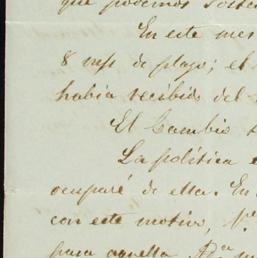 que podemos soste
En este mes
8 m/s de plazo; el
habia recibido del
El Cambio
La política e
ocuparé de ella. En
con este motivo, N.
para aquella Rca